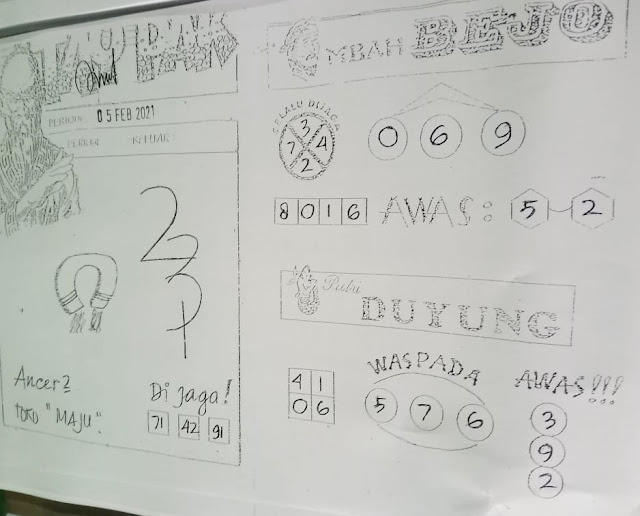 05 FEB 2021
Ancer2
TOKO "MAJU".
Di jaga!
71 42 91
MBAH BEJO
SELALU DIJAGA
3
7 4
2
0 6 9
8 0 1 6
AWAS: 5 - 2
Putri
DUYUNG
4 1
0 6
WASPADA
5 7 6
AWAS!!!
3
9
2